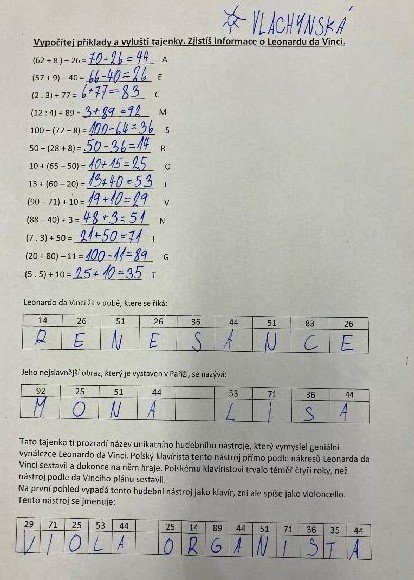 VLACHYNSKÁ
Vypočítej příklady a vylušti tajenky. Zjistíš informace o Leonardu da Vinci.
(62 + 8) – 26 = 70-26 = 44 A
(57 + 9) – 40 = 66-40 = 26 E
(2 . 3) + 77 = 6+77 = 83 C
(12 : 4) + 89 = 3+89 = 92 M
100 – (72 – 8) = 100-64 = 36 S
50 – (28 + 8) = 50-36 = 14 R
10 + (65 – 50) = 10+15 = 25 O
13 + (60 – 20) = 13+40 = 53 L
(90 – 71) + 10 = 19+10 = 29 V
(88 – 40) + 3 = 48+3 = 51 N
(7 . 3) + 50 = 21+50 = 71 I
(20 + 80) – 11 = 100-11 = 89 G
(5 . 5) + 10 = 25+10 = 35 T
Leonardo da Vinci žil v době, které se říká:
14 26 51 26 36 44 51 83 26
R E N E S A N C E
Jeho nejslavnější obraz, který je vystaven v Paříži, se nazývá:
92 25 51 44 53 71 36 44
M O N A L I S A
Tato tajenka ti prozradí název unikátního hudebního nástroje, který vymyslel geniální
vynálezce Leonardo da Vinci. Polský klavírista tento nástroj přímo podle nákresů Leonarda da
Vinci sestavil a dokonce na něm hraje. Polskému klavíristovi trvalo téměř čtyři roky, než
nástroj podle da Vinciho plánu sestavil.
Na první pohled vypadá tento hudební nástroj jako klavír, zní ale spíše jako violoncello.
Tento nástroj se jmenuje:
29 71 25 53 44 25 14 89 44 51 71 36 35 44
V I O L A O R G A N I S T A